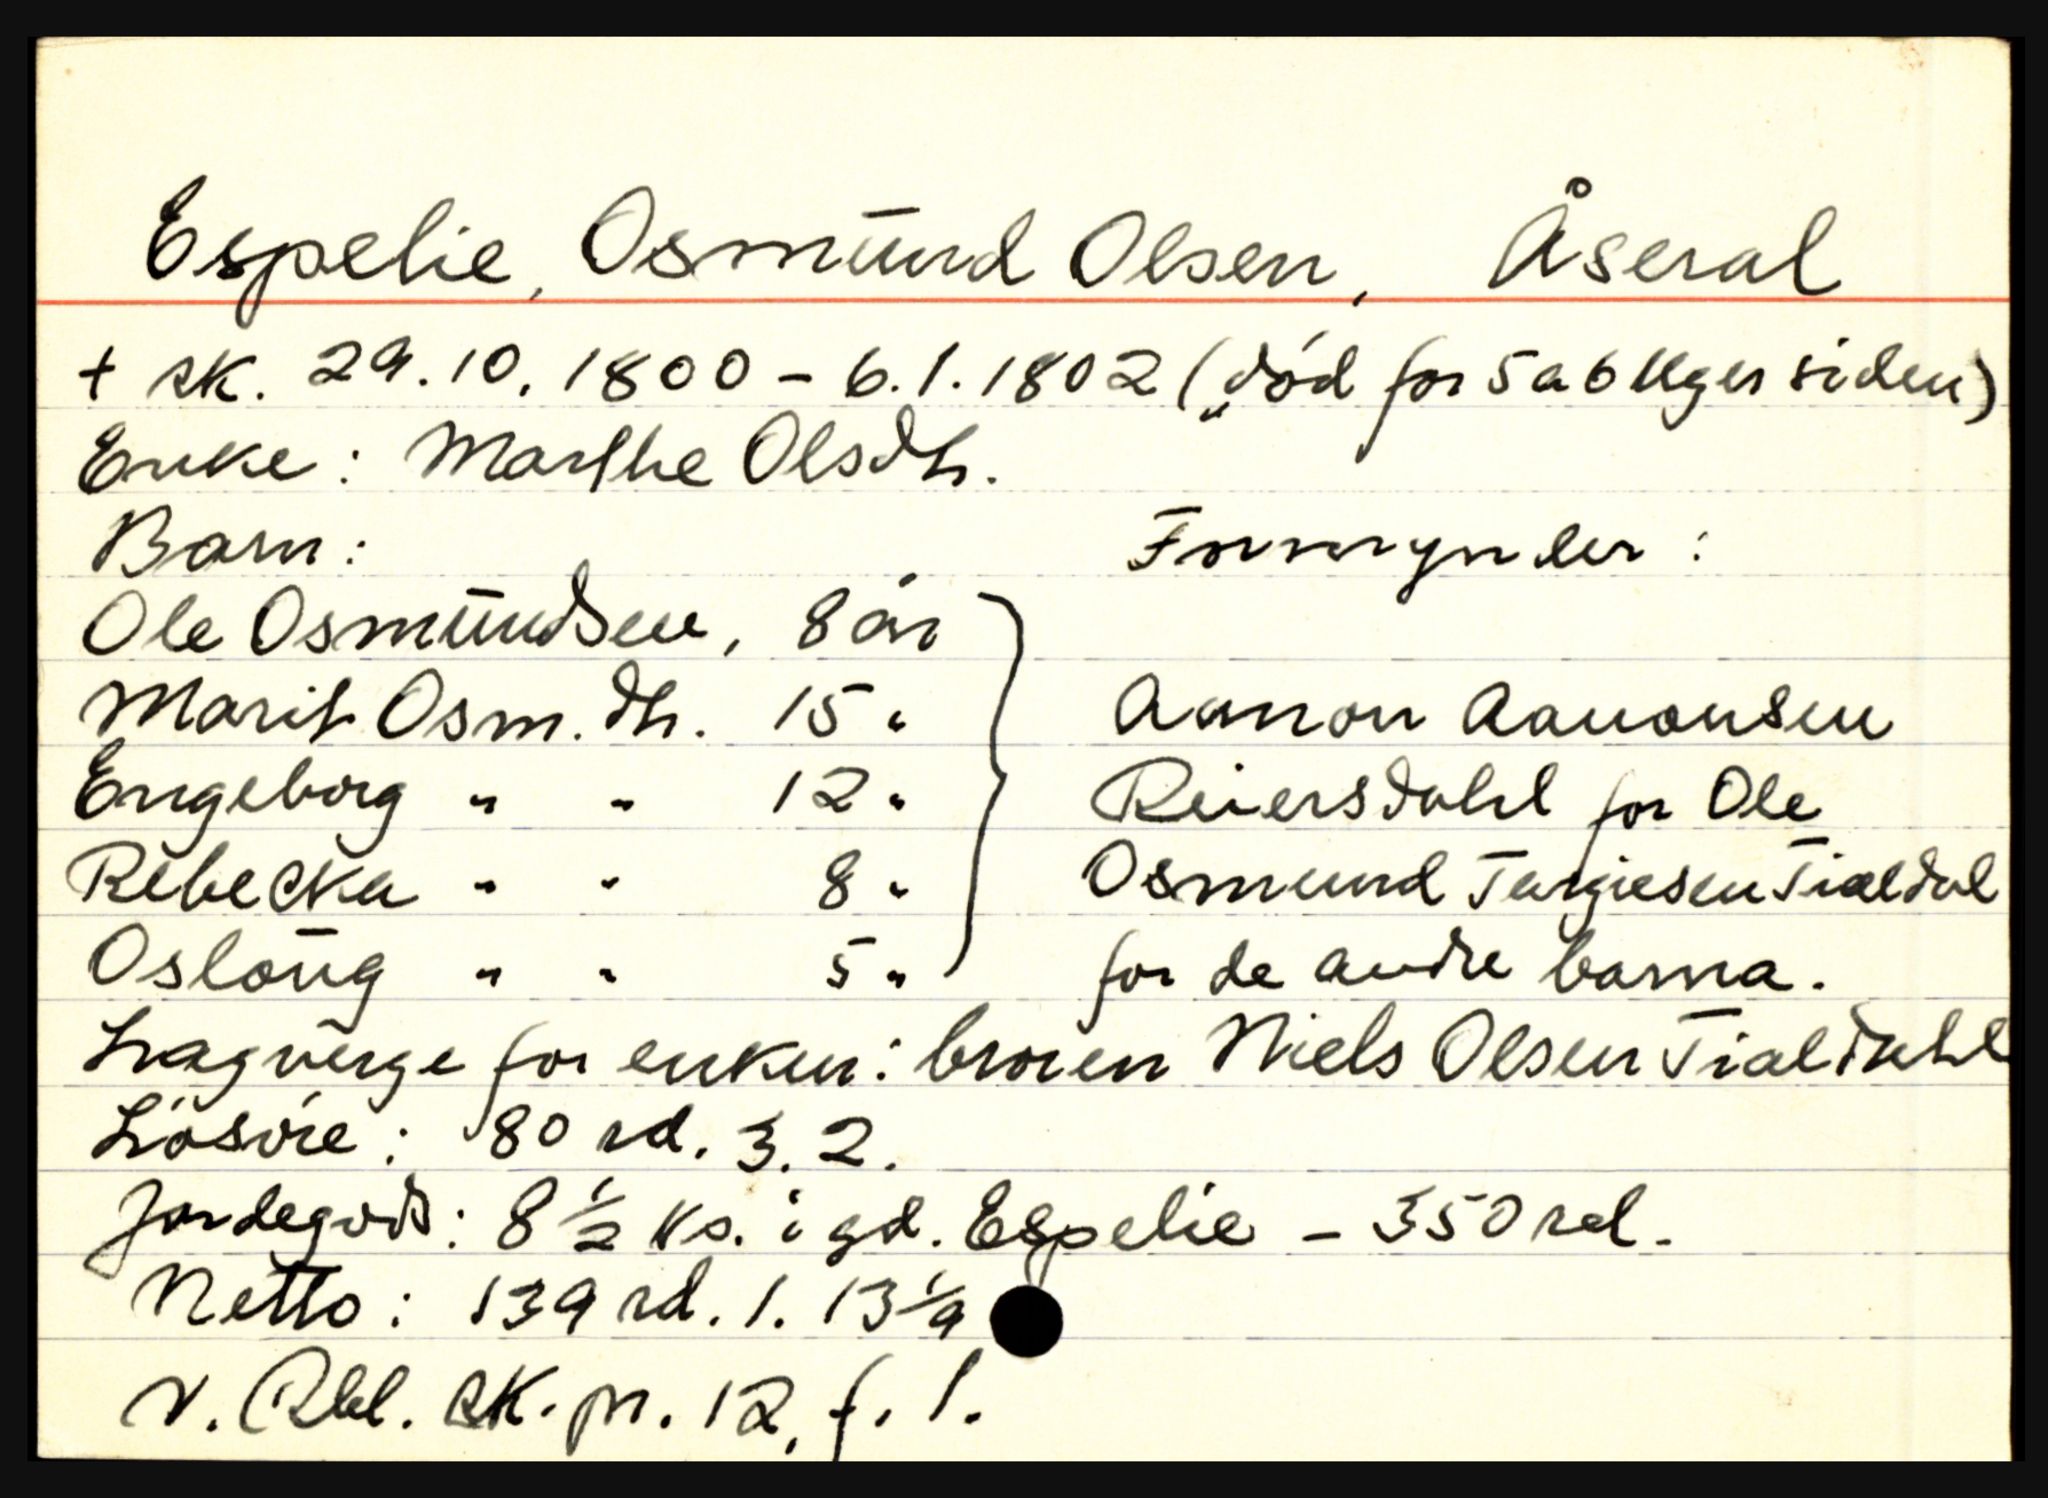 Espelie, Osmund Olsen, Åseral
+ sk. 29.10.1800 - 6.1.1802 („død for 5 a 6 Uger siden)
Enke: Marthe Olsdtr.
Barn: Formynder:
Ole Osmundsen, 8 år
Marit Osm.dtr. 15 "
Aanon Aanonsen
Engeborg " " 12 "
Reiersdahl for Ole
Rebecka " " 8 "
Osmund Tergiesen Tialdal
Osloug " " 5 "
for de andre barna.
Lagverge for enken: broren Niels Olsen Tialdahl
Løsøre: 80 rd. 3. 2.
Jordegods: 8 1/2 ks. i gd. Espelie - 350 rd.
Netto: 139 rd. 1. 13 1/9
V. Rbl. sk. pr. 12, f. 1.